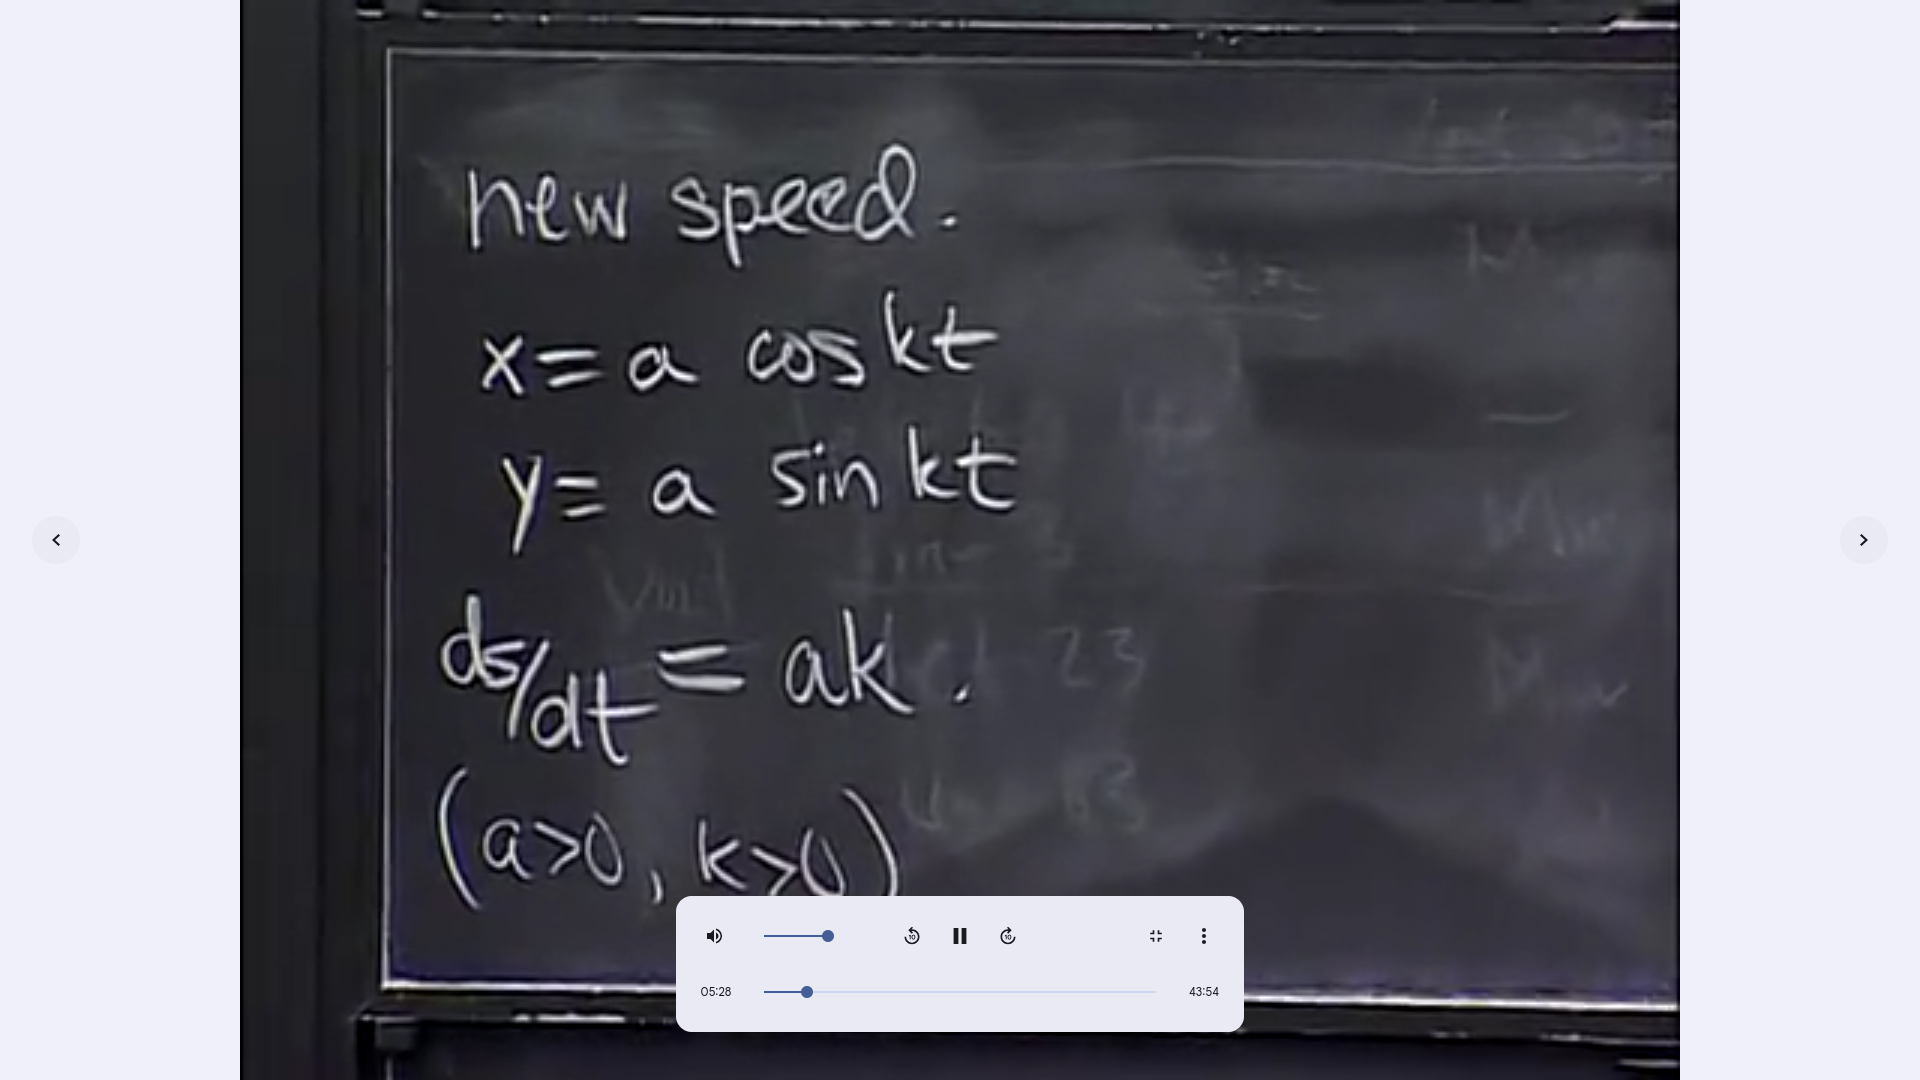 new speed.
x = a cos kt
y = a sin kt
ds/dt = ak.
(a>0, k>0)
10
10
05:28
43:54